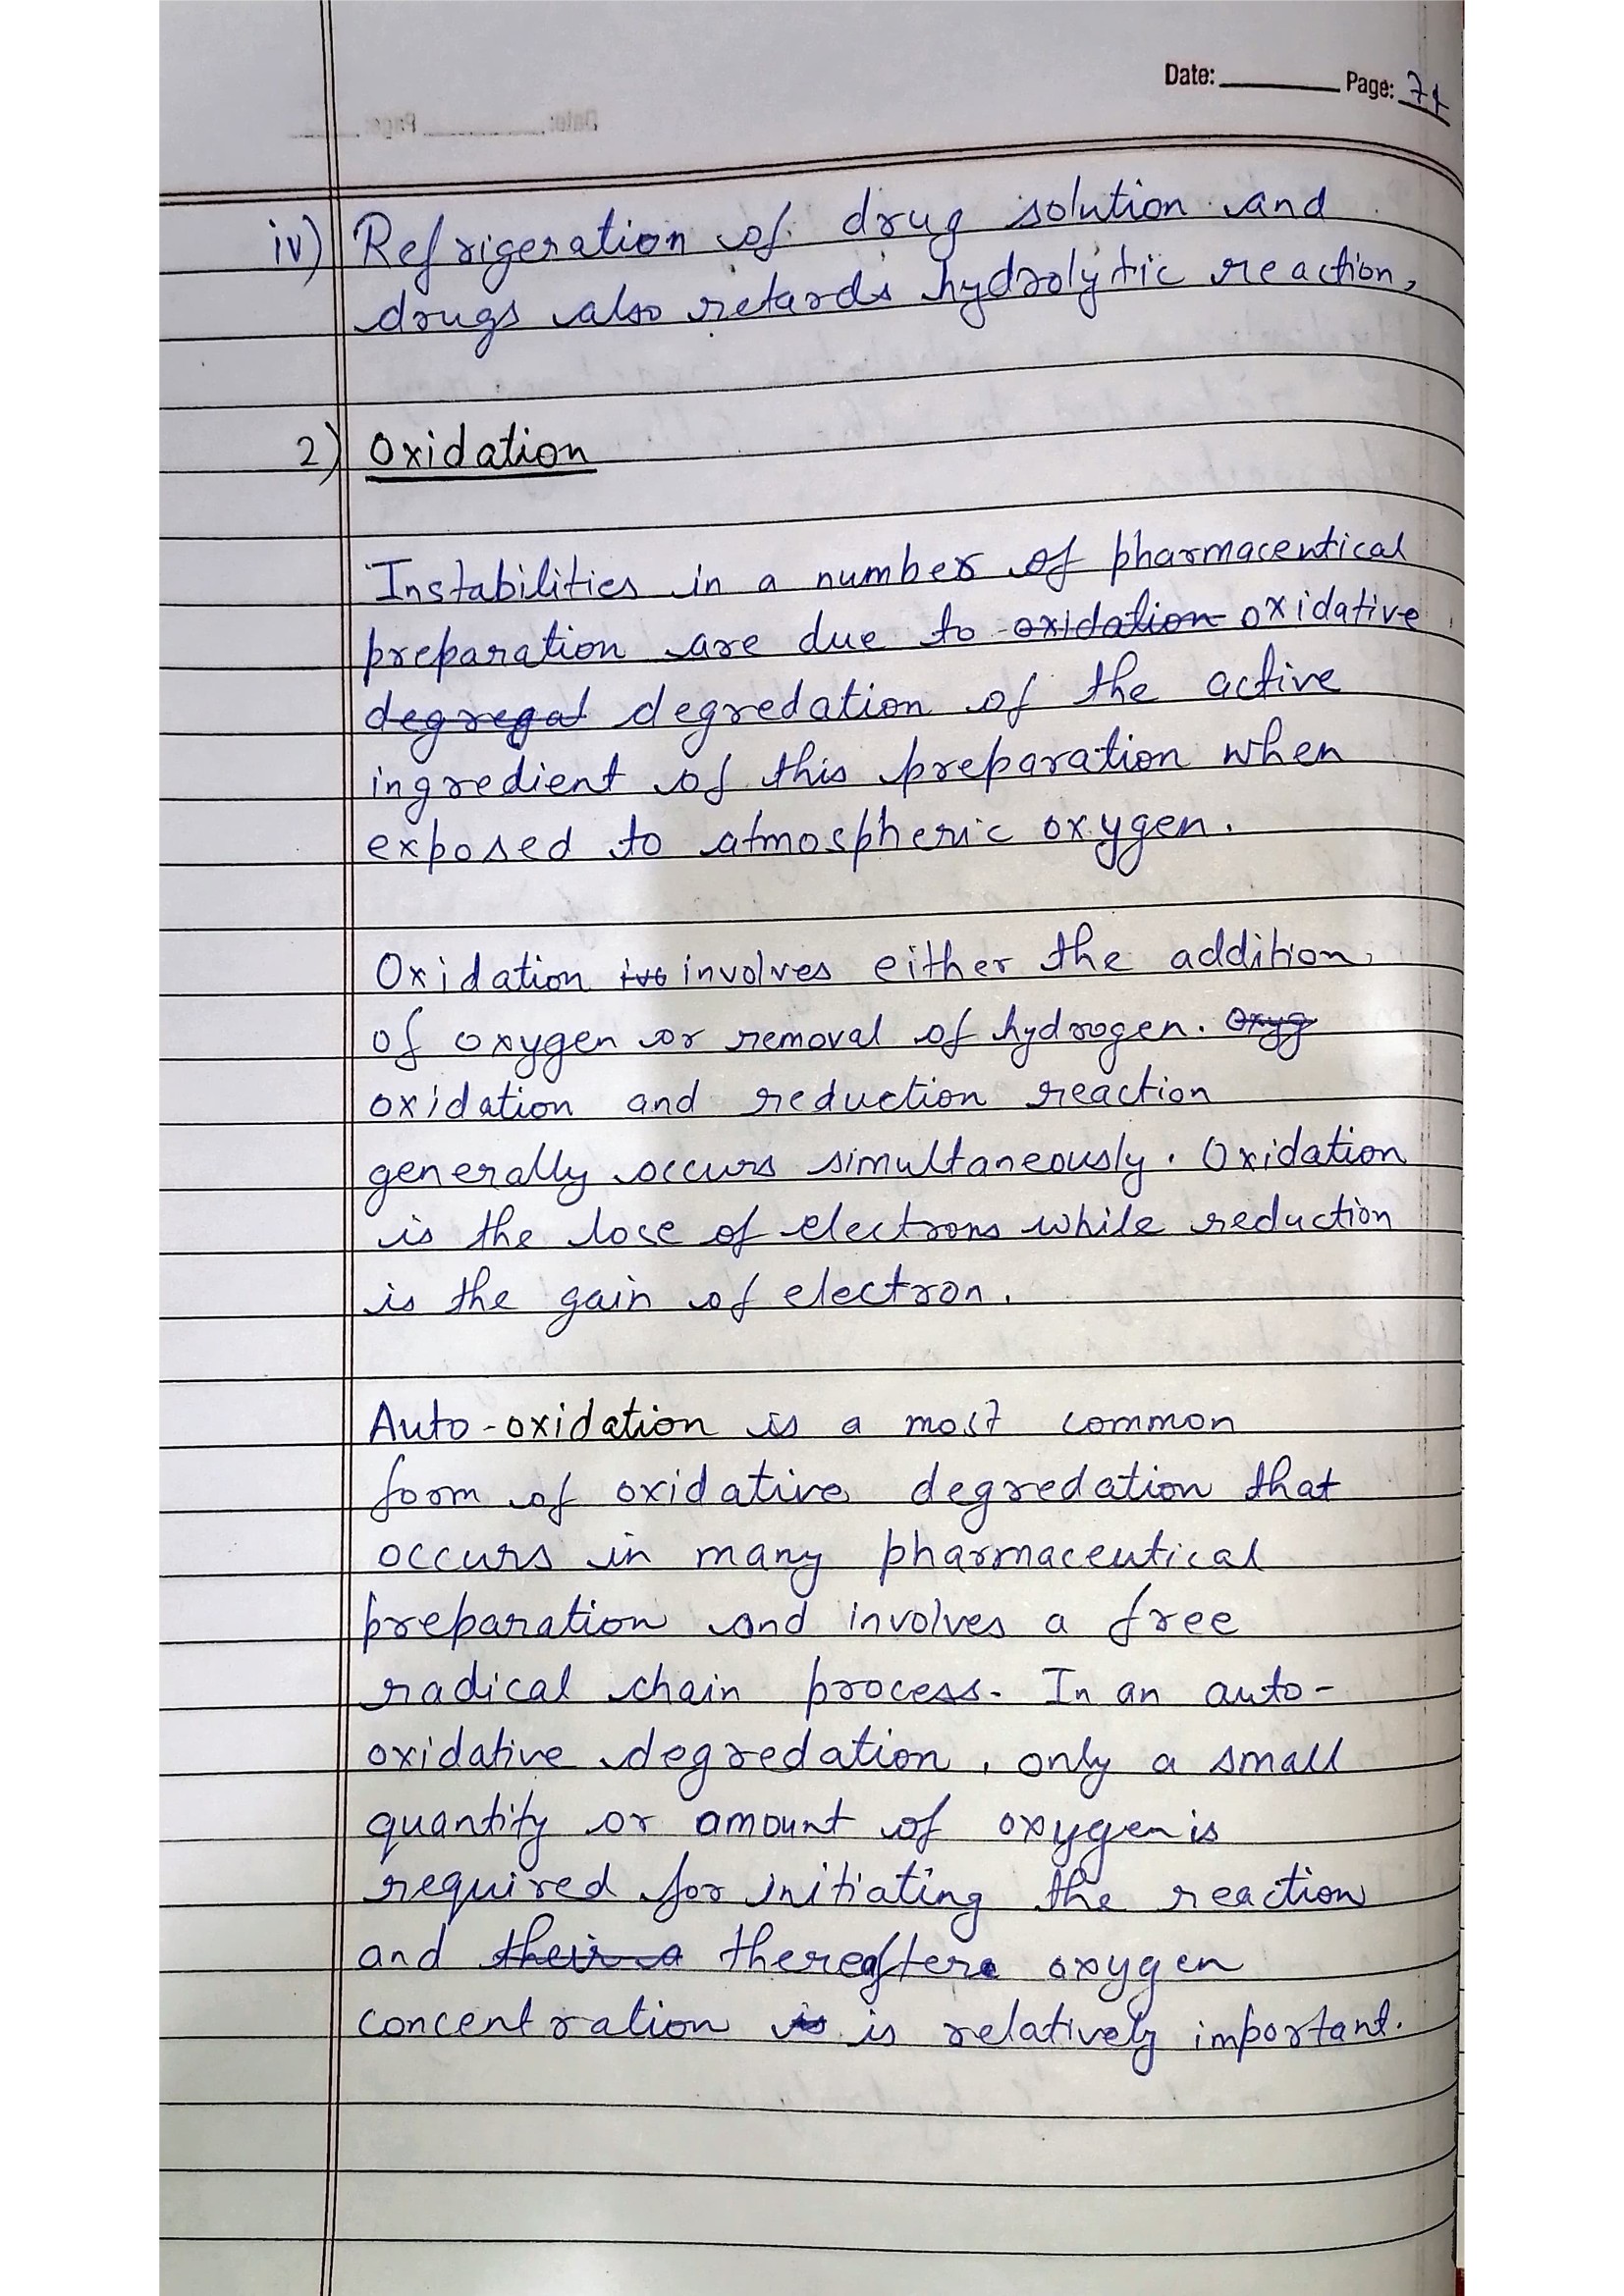 Date: ________ Page: 71
iv) Refrigeration of drug solution and
drugs also retards hydrolytic reaction,
2) Oxidation
Instabilities in a number of pharmaceutical
preparation are due to oxidation oxidative
degregat degredation of the active
ingredient of this preparation when
exposed to atmospheric oxygen.
Oxidation ivo involves either the addition
of oxygen or removal of hydrogen. Oxyg
oxidation and reduction reaction
generally occurs simultaneously. Oxidation
is the lose of electrons while reduction
is the gain of electron.
Auto-oxidation is a most common
form of oxidative degredation that
occurs in many pharmaceutical
preparation and involves a free
radical chain process. In an auto-
oxidative degredation, only a small
quantity or amount of oxygen is
required for initiating the reaction
and their a thereafter oxygen
concentration is is relatively important.